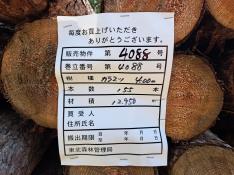 毎度お買上げいただき
ありがとうございます。
販売物件 第 4088 号
巻立番号 第 4088 号
樹種 カラマツ 4.00m
本数 155 本
材積 12.950 m³
買受人
住所氏名
搬出期限 自 年 月 日
至 年 月 日
東北森林管理局